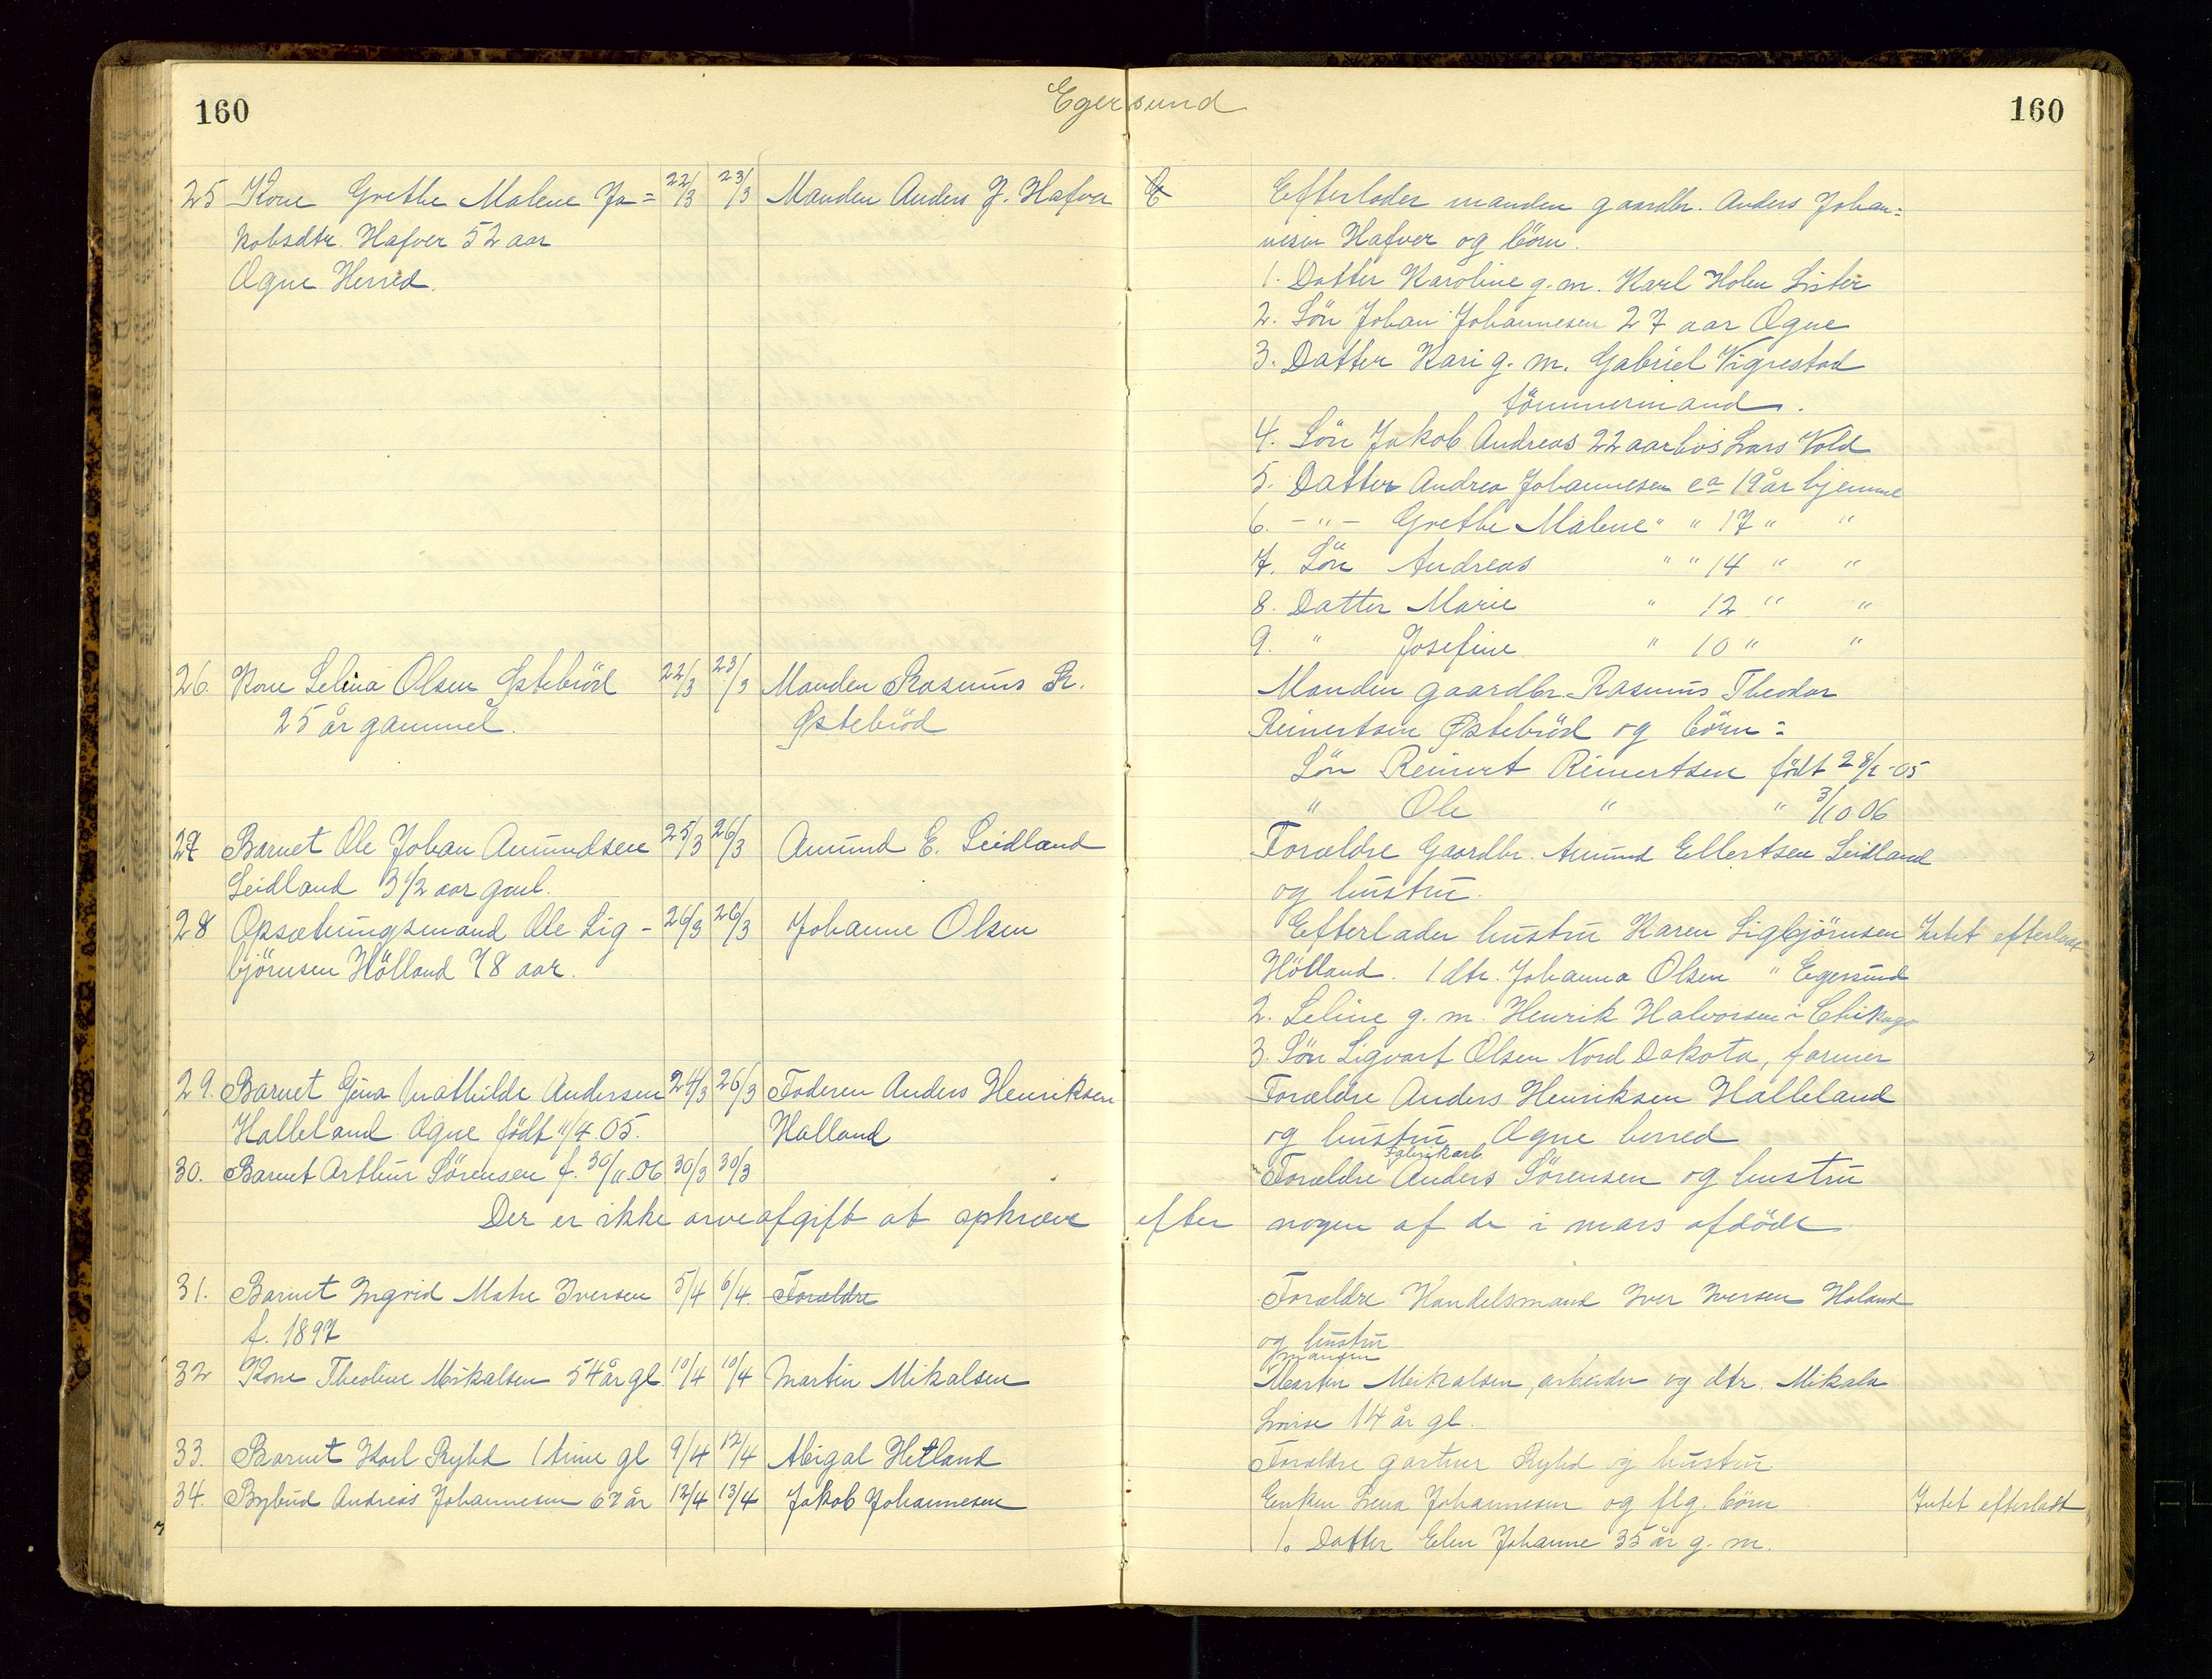 160
Egersund
160
25 Kone Grethe Malene Ja= 22/3 23/3 Manden Anders J. Hafver
kobsdtr. Hafver 52 aar
Ogne Herred.
Efterlader manden gaardbr. Anders Johan=
nesen Hafver og börn.
1. Datter Karoline g. m. Karl Holen Lister
2. Sön Johan Johannesen 27 aar Ogne
3. Datter Kari g. m. Gabriel Vigrestad
tömmermand.
4. Sön Jakob Andreas 22 aar hos Lars Vold
5. Datter Andrea Johannesen ca 19 år hjemme
6. - " - Grethe Malene " " 17 " "
7. Sön Andreas " " 14 " "
8. Datter Marie " 12 " "
9. " Josefine " 10 " "
26. Kone Selina Olsen Østebröd 22/3 23/3 Manden Rasmus R.
25 år gammel. Østebröd
Manden gaardbr. Rasmus Theodor
Reinertsen Østebröd og börn:
Sön Reinert Reinertsen født 28/2-05
" Ole " " 3/10 06
27 Barnet Ole Johan Amundsen 25/3 26/3 Amund E. Seidland
Seidland 3 1/2 aar gml.
Forældre Gaardbr. Amund Ellertsen Seidland
og hustru.
28 Opsætningsmand Ole Sig- 26/3 26/3 Johanne Olsen
björnsen Hölland 78 aar.
Efterlader hustru Karen Sigbjörnsen Intet efterladt
Hölland. 1 dtr. Johanna Olsen " Egersund
2. Seline g. m. Henrik Halvorsen i Chikago
3. Sön Sigvart Olsen Nord Dakota, farmer
29. Barnet Gina Mathilde Andersen 24/3 26/3 Faderen Anders Henriksen
Halleland Ogne født 11/4. 05. Halland
Forældre Anders Henriksen Halleland
og hustru Ogne herred
30. Barnet Arthur Sörensen f. 30/11.06 30/3 30/3
fabrikarb.
Forældre Anders Sörensen og hustru
Der er ikke arveafgift at opkræve efter nogen af de i mars afdöde
31. Barnet Ingrid Marie Iversen 5/4 6/4. Forældre
f. 1897
Forældre Handelsmand Iver Iversen Haland
og hustru
32 Kone Theoline Mikalsen 54 år gl. 10/4 10/4 Martin Mikalsen
manden
Martin Mikalsen, arbeider og dtr. Mikala
Lovise 14 år gl.
33. Barnet Karl Rybd 1 time gl 9/4 12/4 Abigal Hetland
Forældre gartner Rybd og hustru.
34. Bybud Andreas Johannesen 67 år 12/4 13/4 Jakob Johannesen
Enken Lena Johannesen og flg. börn Intet efterladt
1. Datter Elen Johanne 35 år g. m.